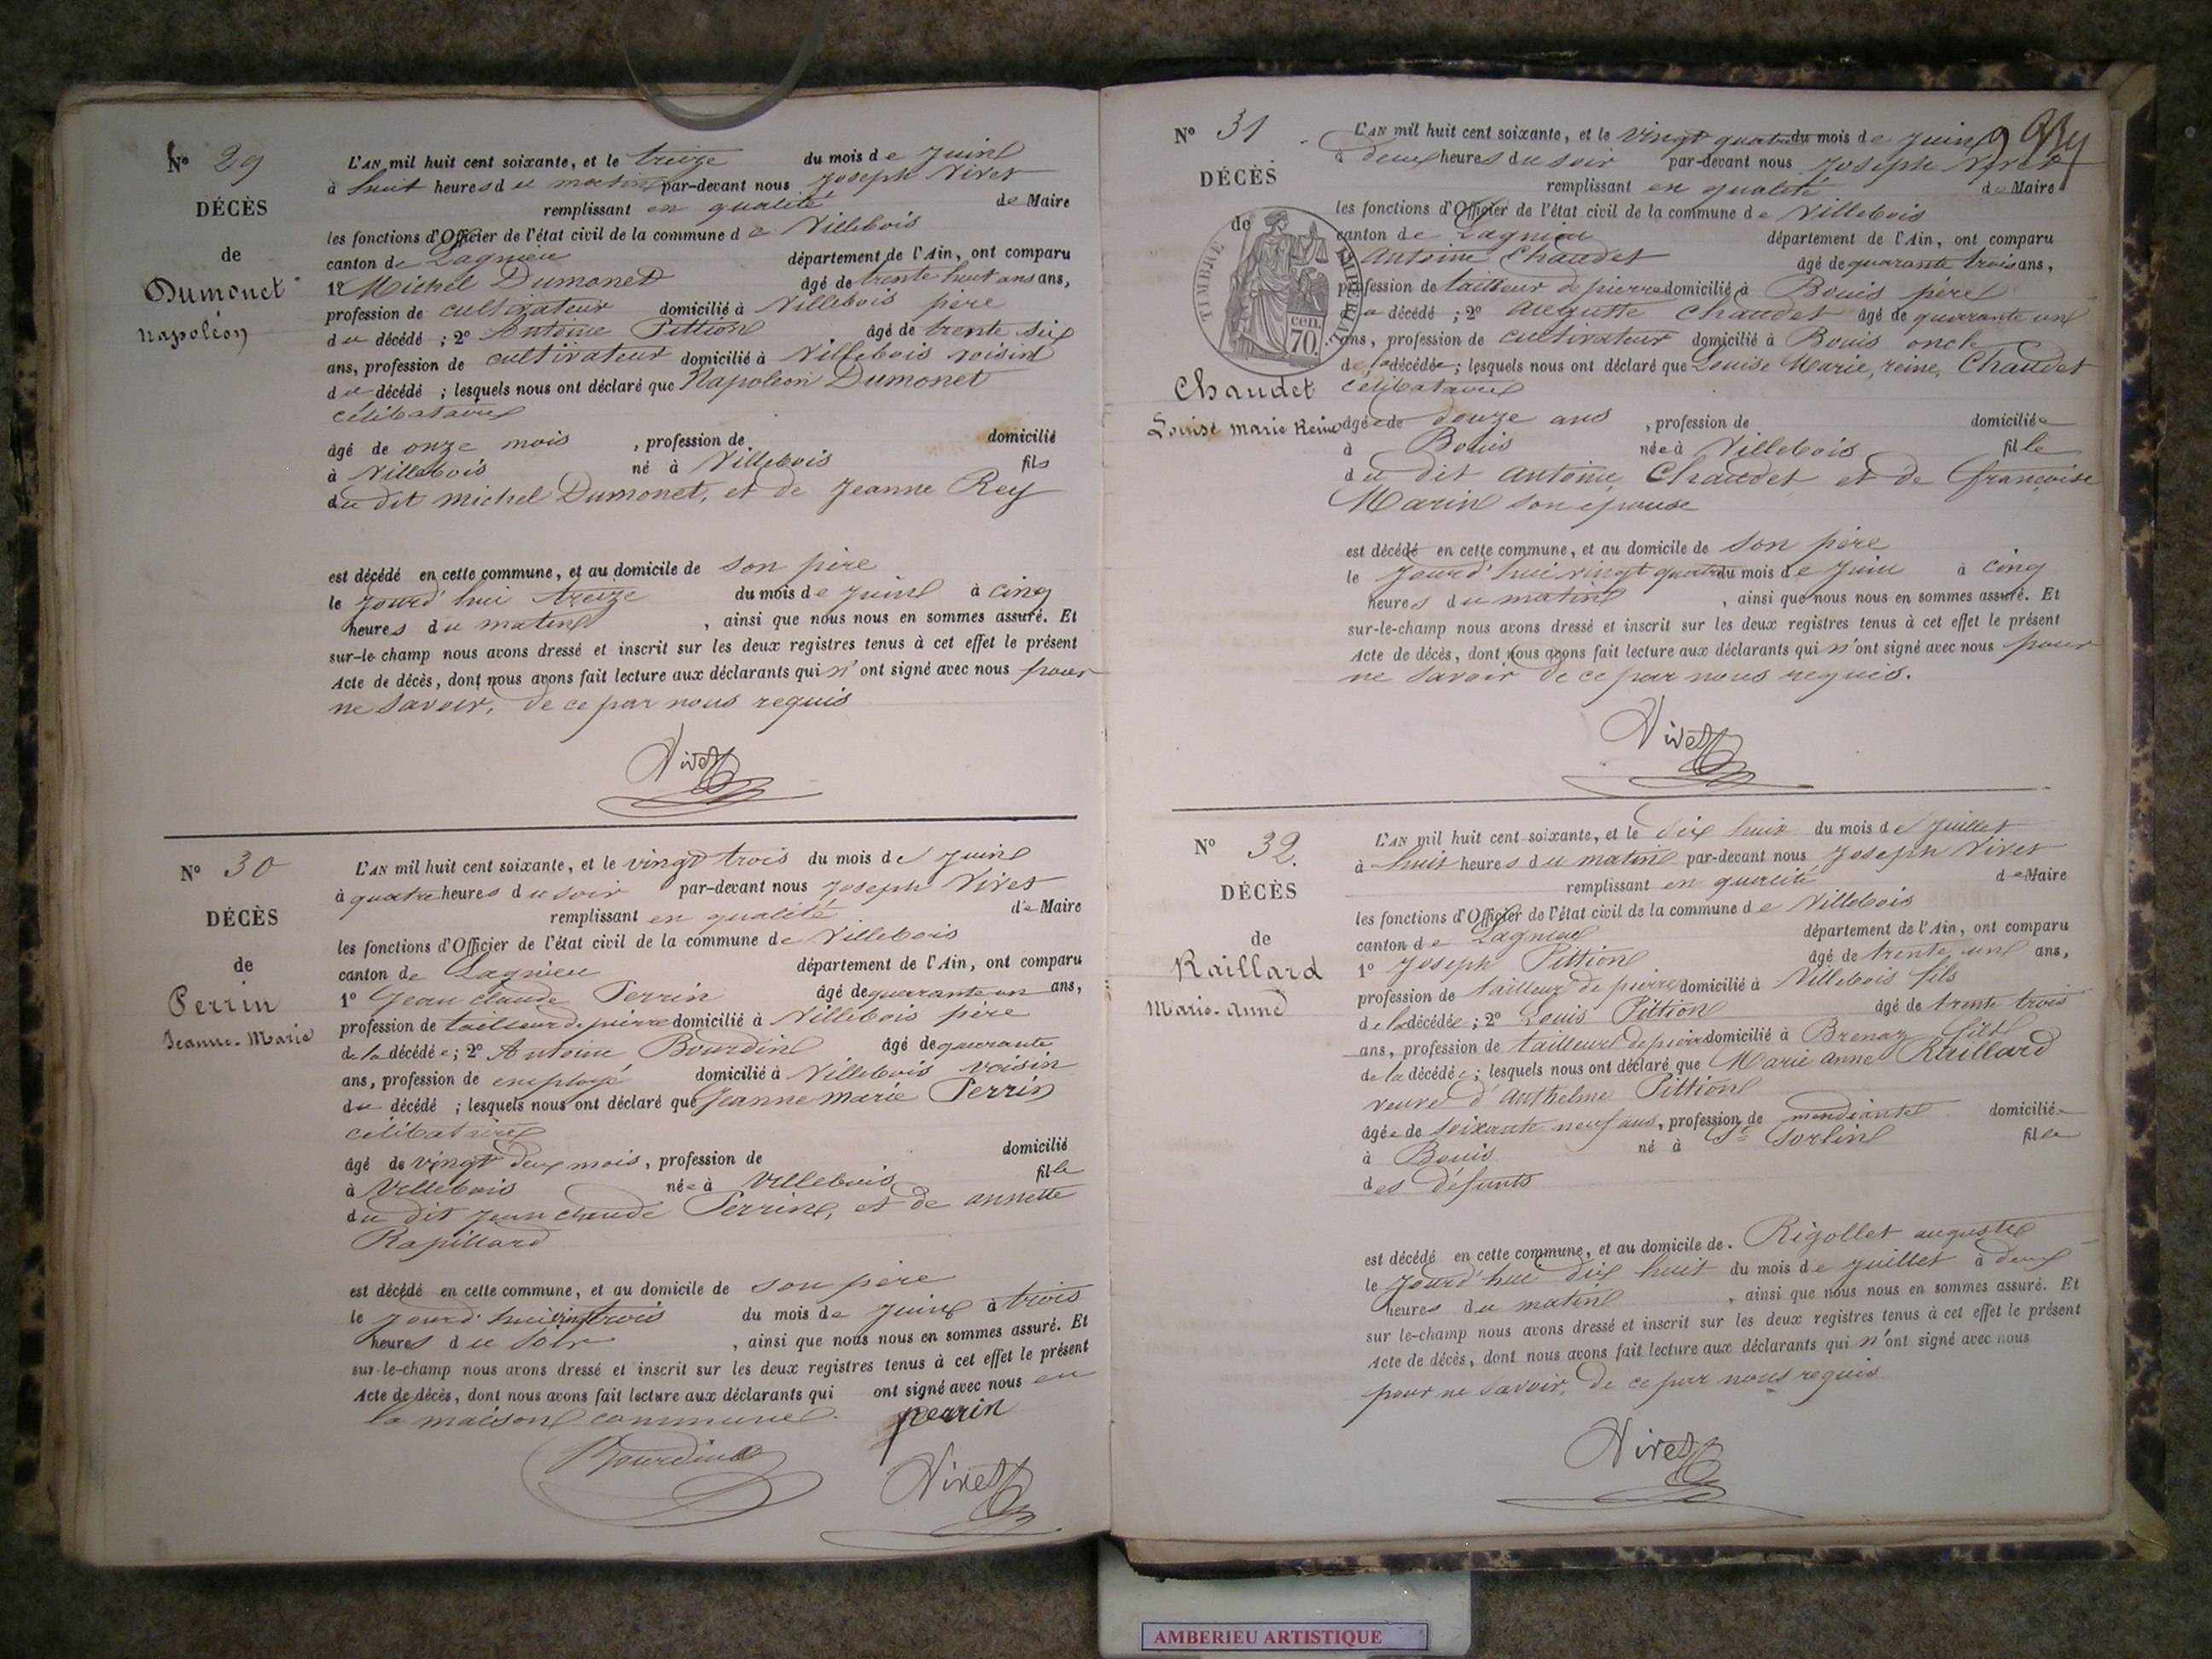 No 29
DÉCÈS
de
Dumonet
Napoléon
L'AN mil huit cent soixante, et le treize du mois de Juin
à huit heures du matin par-devant nous Joseph Vivet
remplissant en qualité de Maire
les fonctions d'Officier de l'état civil de la commune de Villebois
canton de Lagnieu département de l'Ain, ont comparu
1º Michel Dumonet âgé de trente huit ans ans,
profession de cultivateur domicilié à Villebois père
du décédé ; 2º Antoine Pittion âgé de trente six
ans, profession de cultivateur domicilié à Villebois voisin
du décédé ; lesquels nous ont déclaré que Napoléon Dumonet
célibataire
âgé de onze mois , profession de domicilié
à Villebois né à Villebois fils
du dit Michel Dumonet, et de Jeanne Rey
est décédé en cette commune, et au domicile de son père
le Jourd'hui treize du mois de Juin à cinq
heures du matin , ainsi que nous nous en sommes assuré. Et
sur-le-champ nous avons dressé et inscrit sur les deux registres tenus à cet effet le présent
Acte de décès, dont nous avons fait lecture aux déclarants qui n'ont signé avec nous pour
ne savoir, de ce par nous requis
Vivet
No 30
DÉCÈS
de
Perrin
Jeanne-Marie
L'AN mil huit cent soixante, et le vingt trois du mois de Juin
à quatre heures du soir par-devant nous Joseph Vivet
remplissant en qualité de Maire
les fonctions d'Officier de l'état civil de la commune de Villebois
canton de Lagnieu département de l'Ain, ont comparu
1º Jean Claude Perrin âgé de quarante un ans,
profession de tailleur de pierre domicilié à Villebois père
de la décédée ; 2º Antoine Bourdin âgé de quarante
ans, profession de employé domicilié à Villebois voisin
du décédé ; lesquels nous ont déclaré que Jeanne Marie Perrin
célibataire
âgé de vingt deux mois, profession de domicilié
à Villebois née à Villebois fille
du dit Jean Claude Perrin, et de annette
Rapillard
est décédé en cette commune, et au domicile de son père
le Jourd'hui vingt trois du mois de Juin à trois
heures du soir , ainsi que nous nous en sommes assuré. Et
sur-le-champ nous avons dressé et inscrit sur les deux registres tenus à cet effet le présent
Acte de décès, dont nous avons fait lecture aux déclarants qui ont signé avec nous en
la maison commune. perrin
Bourdin
Vivet
No 31
DÉCÈS
de
TIMBRE IMPERIAL
70 cen.
Chaudet
Louise Marie Reine
L'AN mil huit cent soixante, et le vingt quatre du mois de Juin
à deux heures du soir par-devant nous Joseph Vivet
remplissant en qualité de Maire
les fonctions d'Officier de l'état civil de la commune de Villebois
canton de Lagnieu département de l'Ain, ont comparu
Antoine Chaudet âgé de quarante trois ans,
profession de tailleur de pierre domicilié à Bouis père
de la décédé ; 2º Augutte Chaudet âgé de quarante un
ans, profession de cultivateur domicilié à Bouis oncle
de la décédée ; lesquels nous ont déclaré que Louise Marie, reine, Chaudet
célibataire
âgée de douze ans , profession de domiciliée
à Bouis née à Villebois fille
du dit Antoine Chaudet et de françoise
Marin son épouse
est décédé en cette commune, et au domicile de son père
le Jourd'hui vingt quatre du mois de Juin à cinq
heures du matin , ainsi que nous nous en sommes assuré. Et
sur-le-champ nous avons dressé et inscrit sur les deux registres tenus à cet effet le présent
Acte de décès, dont nous avons fait lecture aux déclarants qui n'ont signé avec nous pour
ne savoir de ce par nous requis.
Vivet
No 32.
DÉCÈS
de
Raillard
Marie-Anne
L'AN mil huit cent soixante, et le dix huit du mois de Juillet
à huit heures du matin par-devant nous Joseph Vivet
remplissant en qualité de Maire
les fonctions d'Officier de l'état civil de la commune de Villebois
canton de Lagnieu département de l'Ain, ont comparu
1º Joseph Pittion âgé de trente un ans,
profession de tailleur de pierre domicilié à Villebois fils
de la décédée ; 2º Louis Pittion âgé de trente trois
ans, profession de tailleur de pierre domicilié à Brenaz fils
de la décédée ; lesquels nous ont déclaré que Marie anne Raillard
veuve d'Anthelme Pittion
âgée de soixante neuf ans, profession de mendiante domiciliée
à Bouis né à St Sorlin fille
des défunts
est décédé en cette commune, et au domicile de. Rigollet auguste
le Jourd'hui dix huit du mois de Juillet à deux
heures du matin , ainsi que nous nous en sommes assuré. Et
sur le-champ nous avons dressé et inscrit sur les deux registres tenus à cet effet le présent
Acte de décès, dont nous avons fait lecture aux déclarants qui n'ont signé avec nous
pour ne savoir, de ce par nous requis
Vivet
AMBERIEU ARTISTIQUE